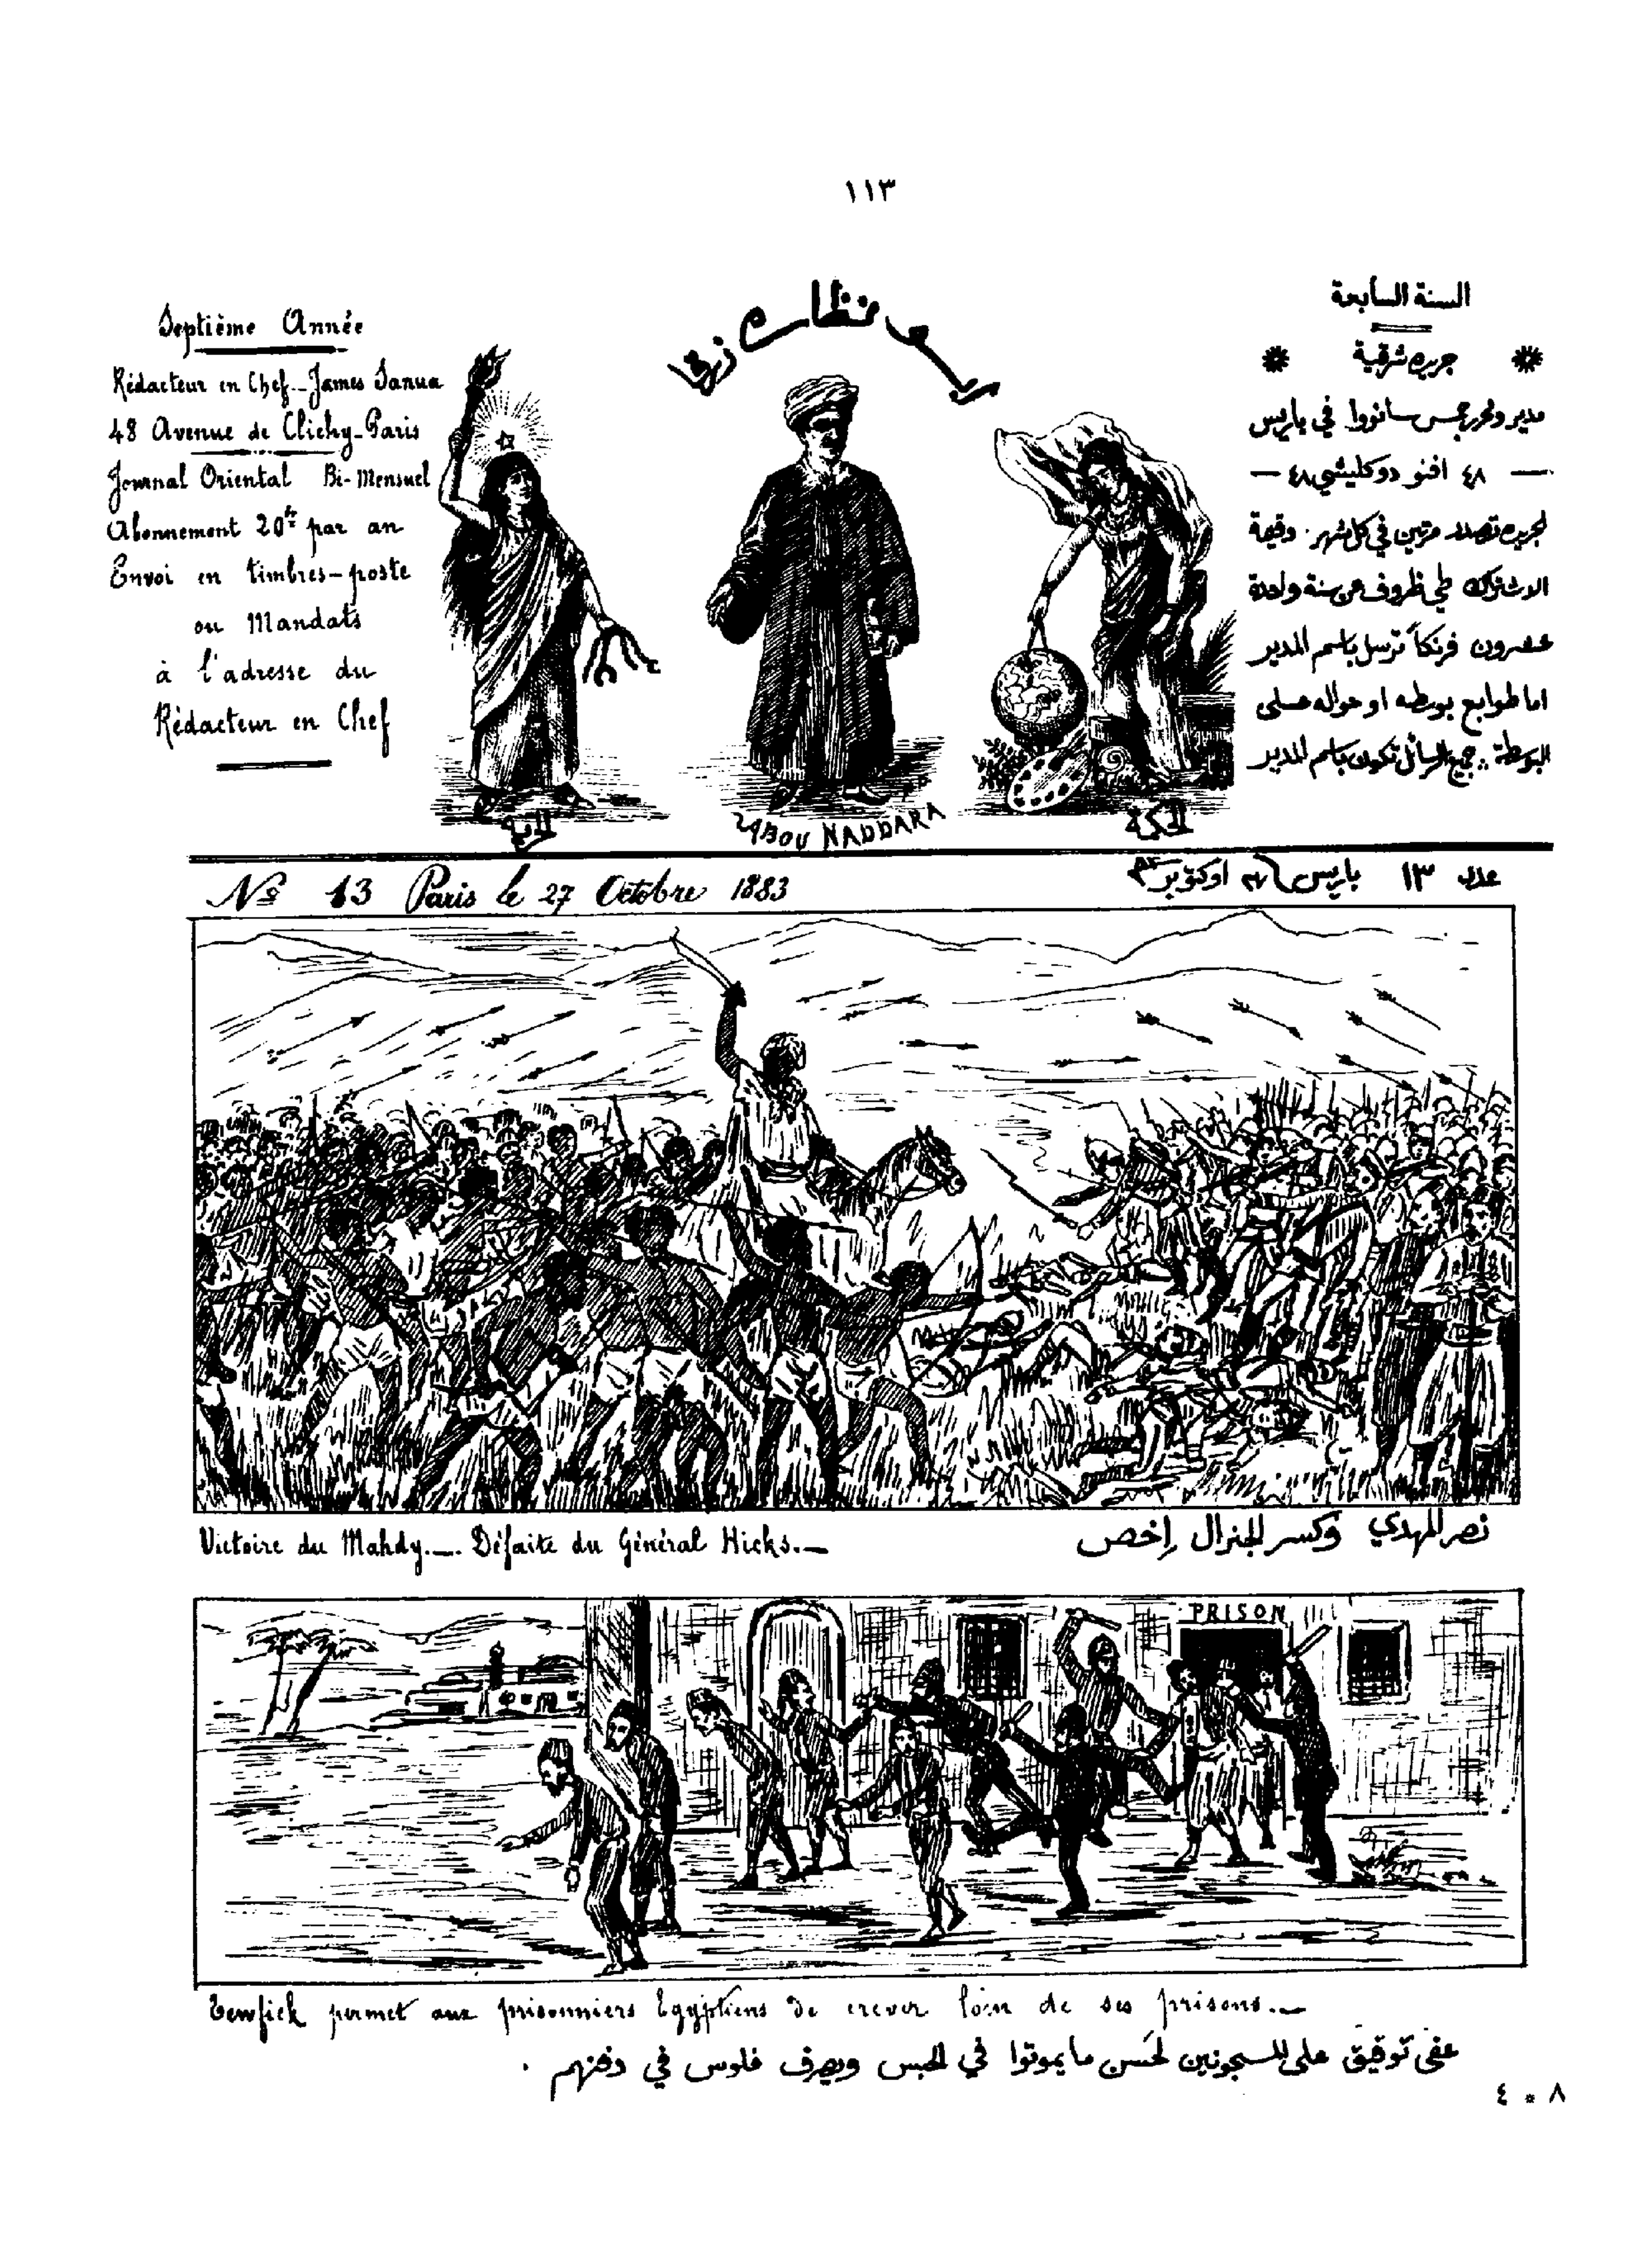 ١١٣
Septième Année
Rédacteur en Chef - James Sanua
48 Avenue de Clichy - Paris
Journal Oriental Bi-Mensuel
Abonnement 20fr par an
Envoi en timbres-poste
ou Mandats
à l'adresse du
Rédacteur en Chef
ابو نظاره زرقا
الحرية
ABOU NADDARA
الحكمة
السنة السابعة
جريده شرقية
مدير ومحرر جمس سانووا في باريس
— ٤٨ افنو دو كليشي ٤٨ —
الجريده تصدر مرتين في كل شهر. وقيمة
الاشتراك طي ظروف عن سنة واحدة
عشرون فرنكاً ترسل باسم المدير
اما طوابع بوسطه او حواله على
البوسطة. جميع الرسائل تكون باسم المدير
No 13 Paris le 27 Octobre 1883
عدد ١٣ باريس ٢٧ اوكتوبر ٨٣
Victoire du Mahdy. — Défaite du Général Hicks. —
نصر المهدي وكسر الجنرال إخص
PRISON
Tewfick permet aux prisonniers Egyptiens de crever loin de ses prisons. —
عفى توفيق على المسجونين لحسن ما يموتوا في الحبس ويصرف فلوس في دفنهم .
٨ * ٤